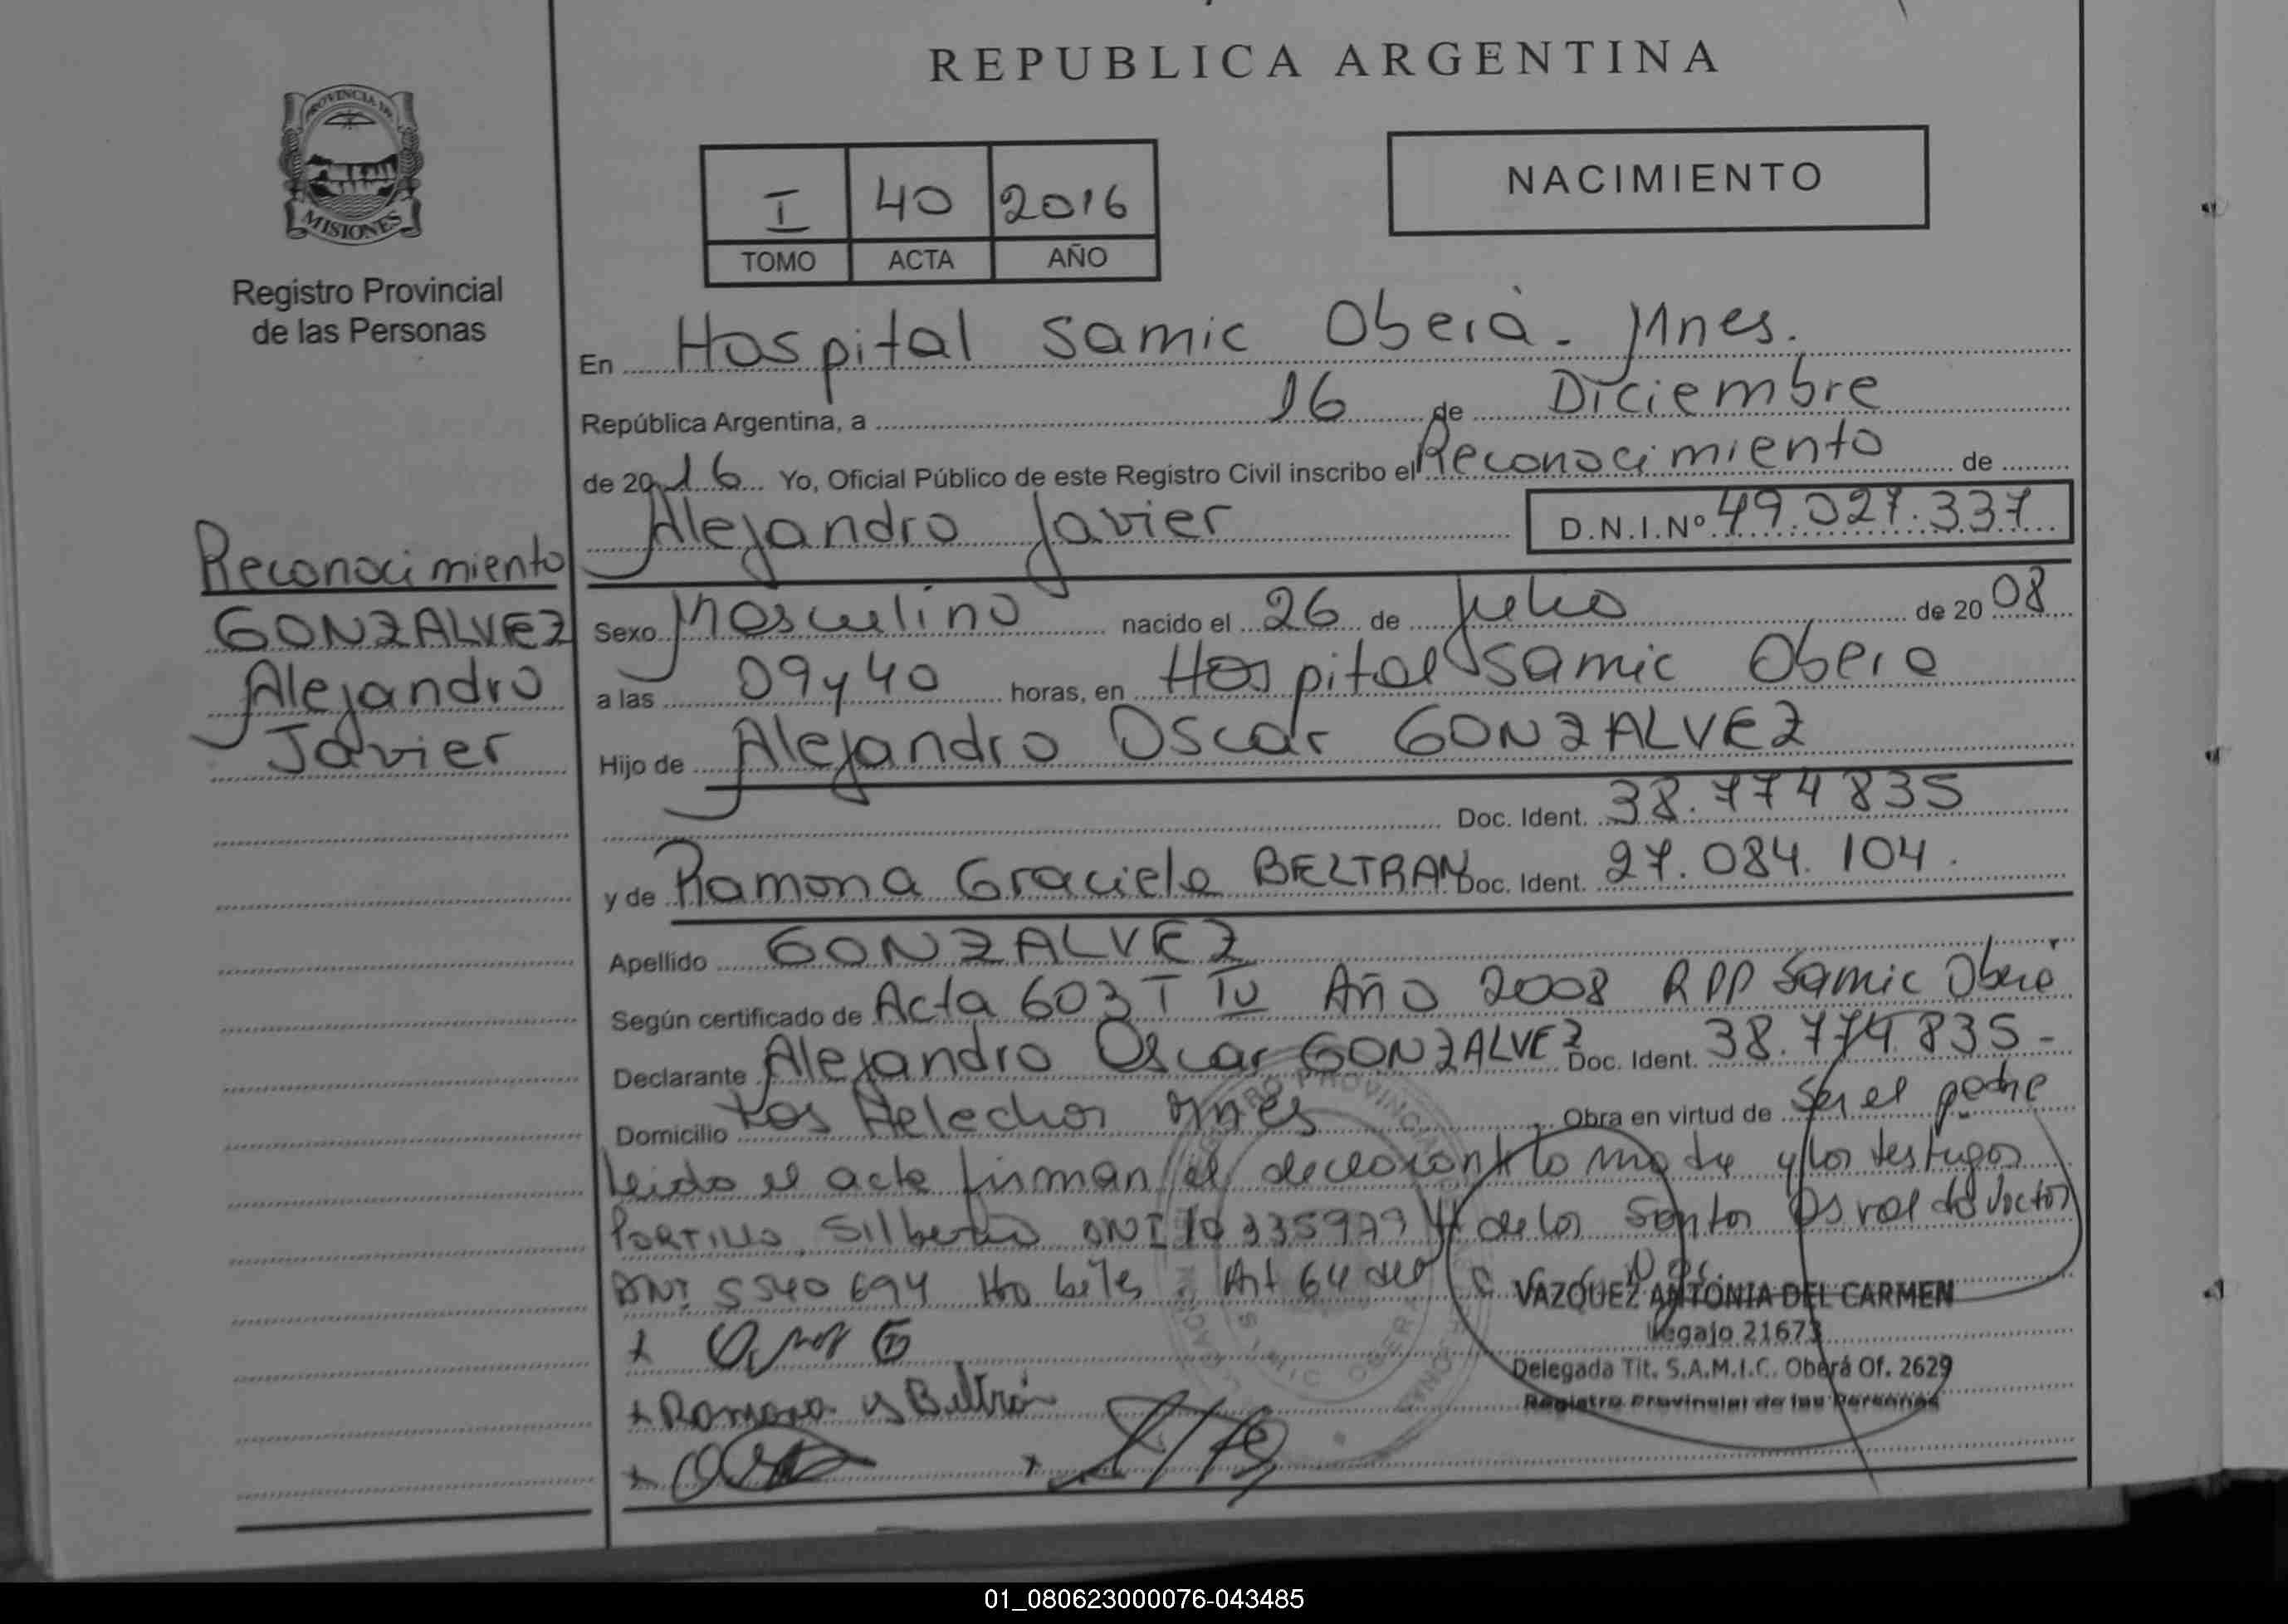 REPUBLICA ARGENTINA
PROVINCIA DE
MISIONES
Registro Provincial
de las Personas
I 40 2016
TOMO ACTA AÑO
NACIMIENTO
En Hospital Samic Oberá - Mnes.
República Argentina, a 16 de Diciembre
de 2016 Yo, Oficial Público de este Registro Civil inscribo el Reconocimiento de
Alejandro Javier D.N.I.Nº 49.027.337
Reconocimiento
GONZALVEZ
Alejandro
Javier
Sexo Masculino nacido el 26 de Julio de 2008
a las 09 y 40 horas, en Hospital Samic Obera
Hijo de Alejandro Oscar GONZALVEZ
Doc. Ident. 38.774835
y de Ramona Graciela BELTRAN Doc. Ident. 27.084.104.
Apellido GONZALVEZ
Según certificado de Acta 603 T IV Año 2008 RPP Samic Oberá
Declarante Alejandro Oscar GONZALVEZ Doc. Ident. 38.774.835-
Domicilio Los Helechos Mnes Obra en virtud de Ser el padre
Leido el acta firman el declarante la madre y los testigos
PORTILLO Silberio DNI 10 335979 de los Santos Osvaldo Victor
DNI 5540 694 Art 64 del
VAZQUEZ ANTONIA DEL CARMEN
Legajo 21673
Delegada Tit. S.A.M.I.C. Oberá Of. 2629
Registro Provincial de las Personas
Ramona G Beltrán
01_080623000076-043485